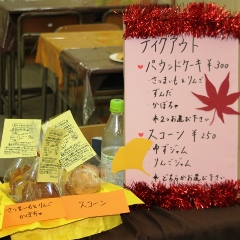 テイクアウト
♥パウンドケーキ ¥300
さつまいもとりんご
ずんだ
かぼちゃ
*2つお選び下さい
♥スコーン ¥250
ゆずジャム
りんごジャム
*どちらかお選び下さい
さつまいもとりんご
かぼちゃ
スコーン